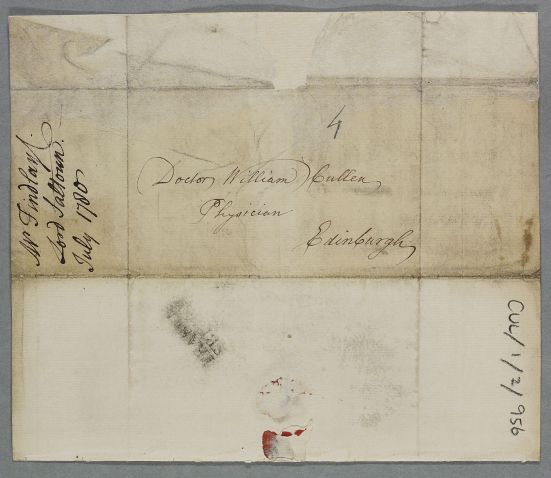 Mr Findlay
Lord Saltoun.
July 1780
4
Doctor William Cullen
Physician
Edinburgh
CUL/1/2/956